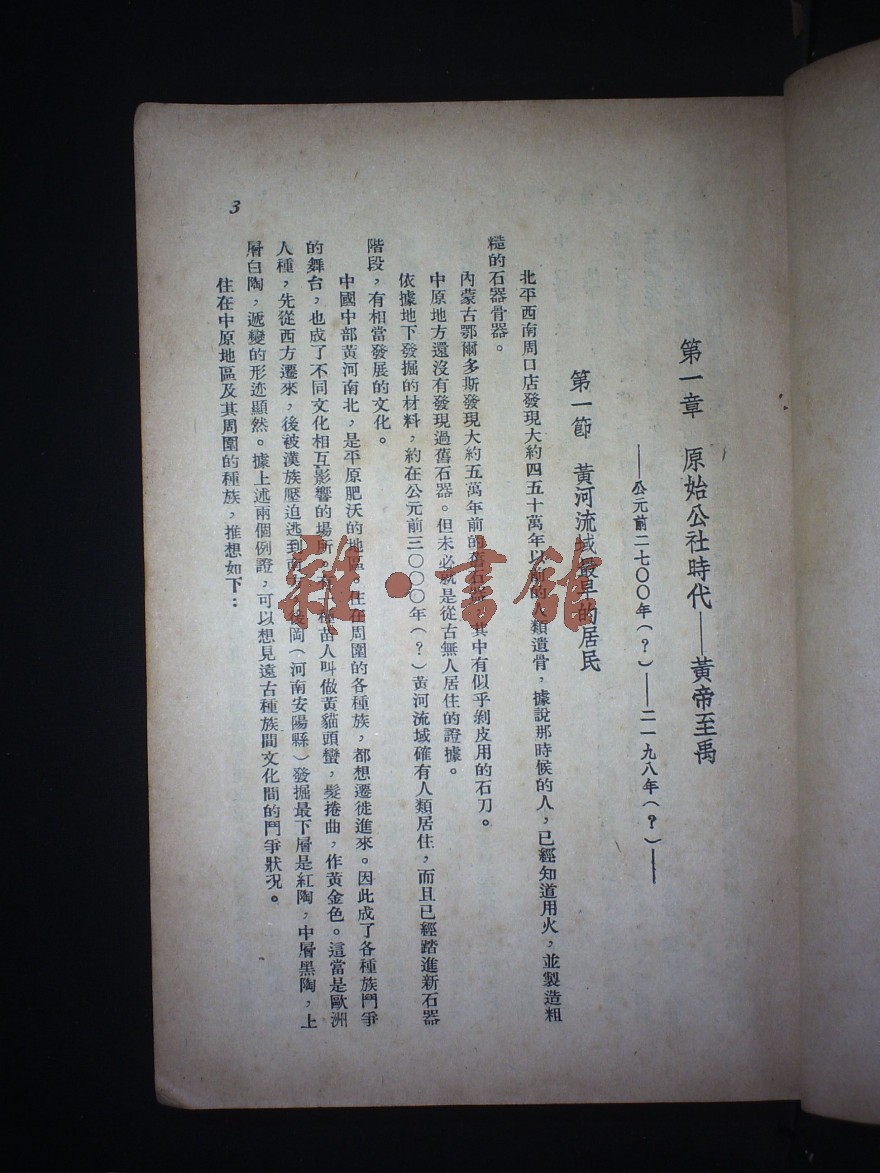 第一章　原始公社時代——黃帝至禹
——公元前二七〇〇年（？）——二一九八年（？）——
第一節　黃河流域最早的居民
北平西南周口店發現大約四五十萬年以前的人類遺骨，據說那時候的人，已經知道用火，並製造粗
糙的石器骨器。
內蒙古鄂爾多斯發現大約五萬年前的舊石器，其中有似乎剝皮用的石刀。
中原地方還沒有發現過舊石器。但未必就是從古無人居住的證據。
依據地下發掘的材料，約在公元前三〇〇〇年（？）黃河流域確有人類居住，而且已經踏進新石器
階段，有相當發展的文化。
中國中部黃河南北，是平原肥沃的地區。住在周圍的各種族，都想遷徙進來。因此成了各種族鬥爭
的舞台，也成了不同文化相互影響的場所。有一種苗人叫做黃貓頭蠻，髮捲曲，作黃金色。這當是歐洲
人種，先從西方遷來，後被漢族壓迫逃到南方。後岡（河南安陽縣）發掘最下層是紅陶，中層黑陶，上
層白陶，遞變的形迹顯然。據上述兩個例證，可以想見遠古種族間文化間的鬥爭狀况。
住在中原地區及其周圍的種族，推想如下：
3
雜·書館